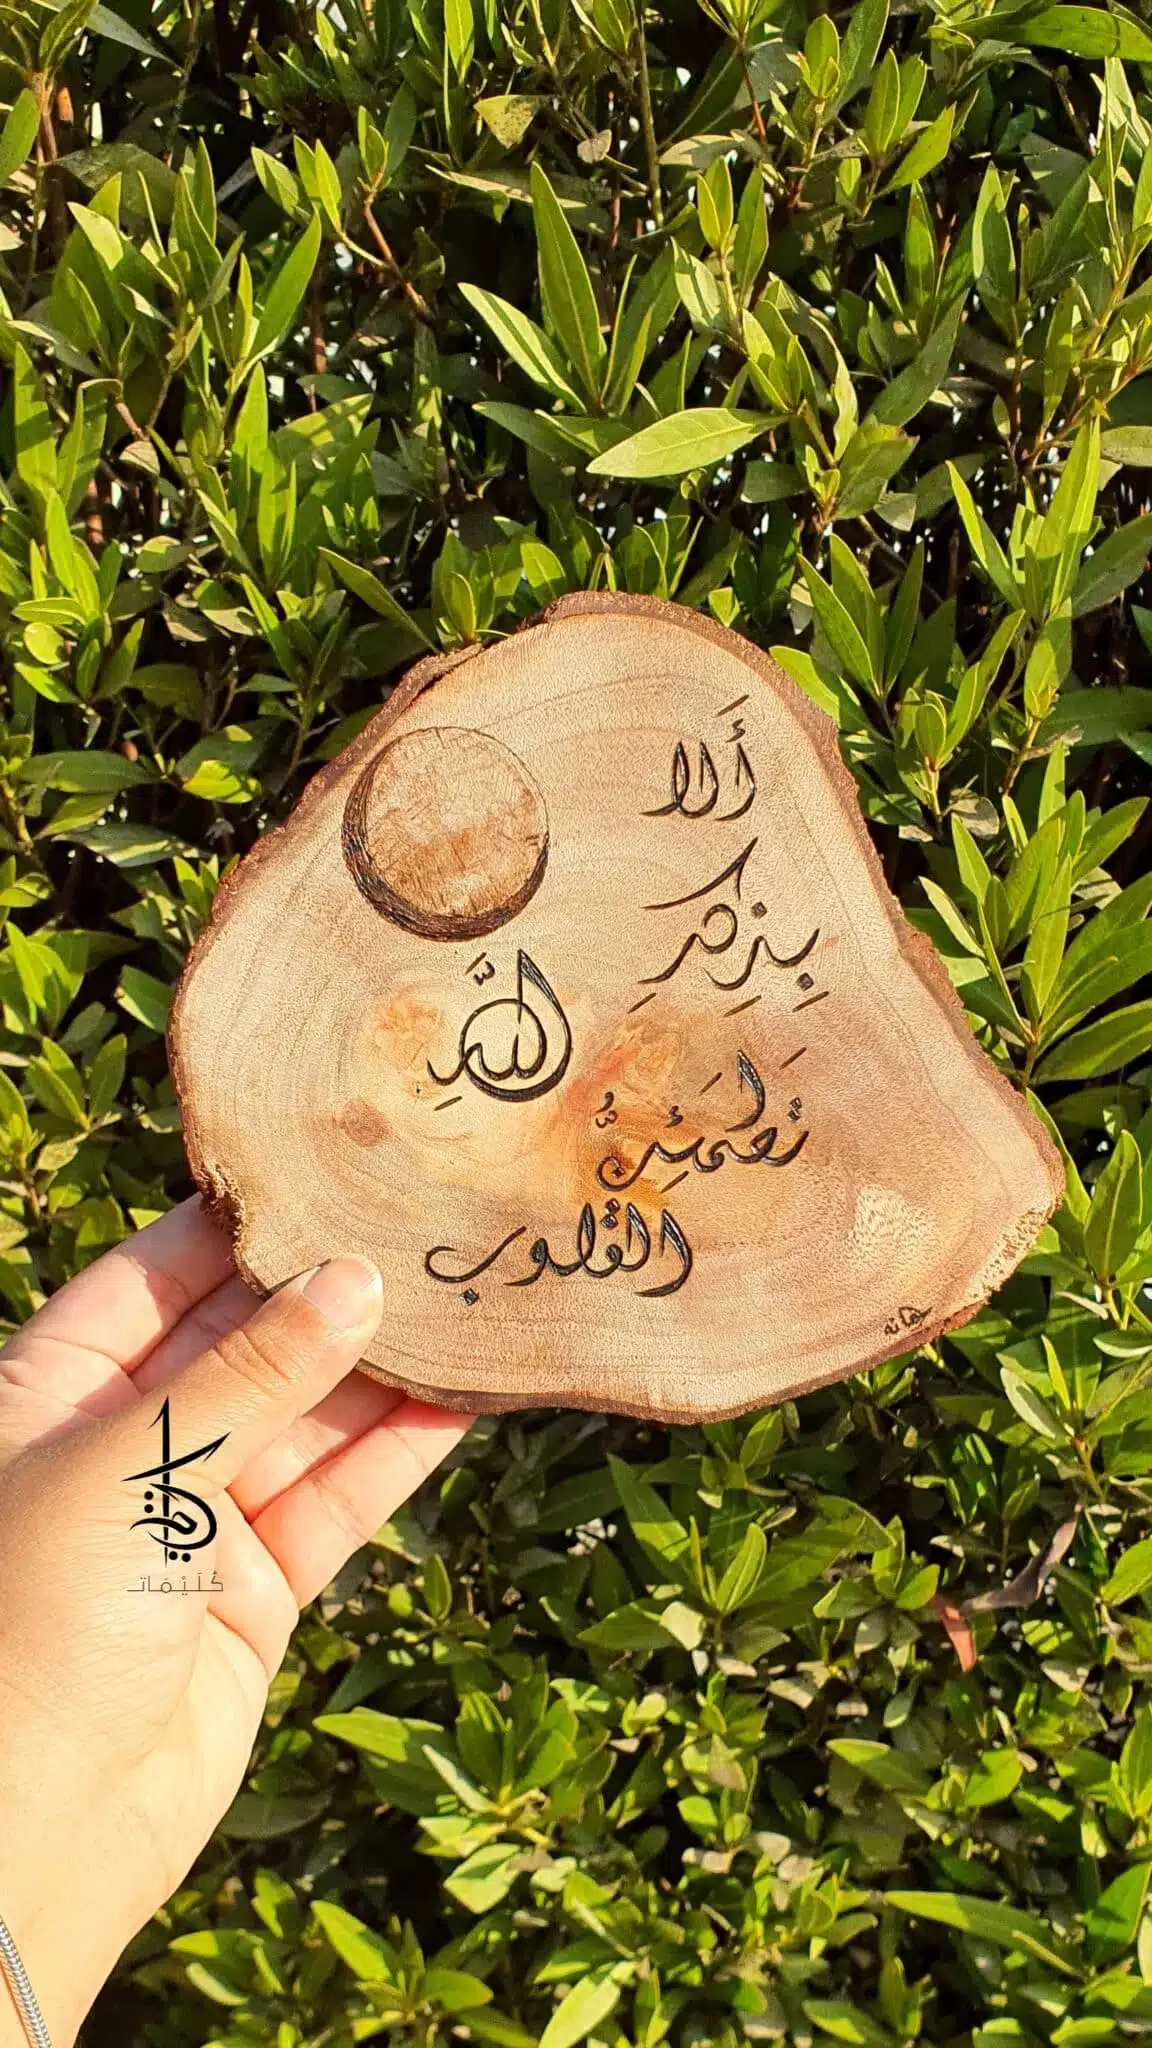 أَلَا
بِذِكْرِ
اللَّهِ
تَطْمَئِنُّ
القلوب
جمانه
كُلَيْمَات